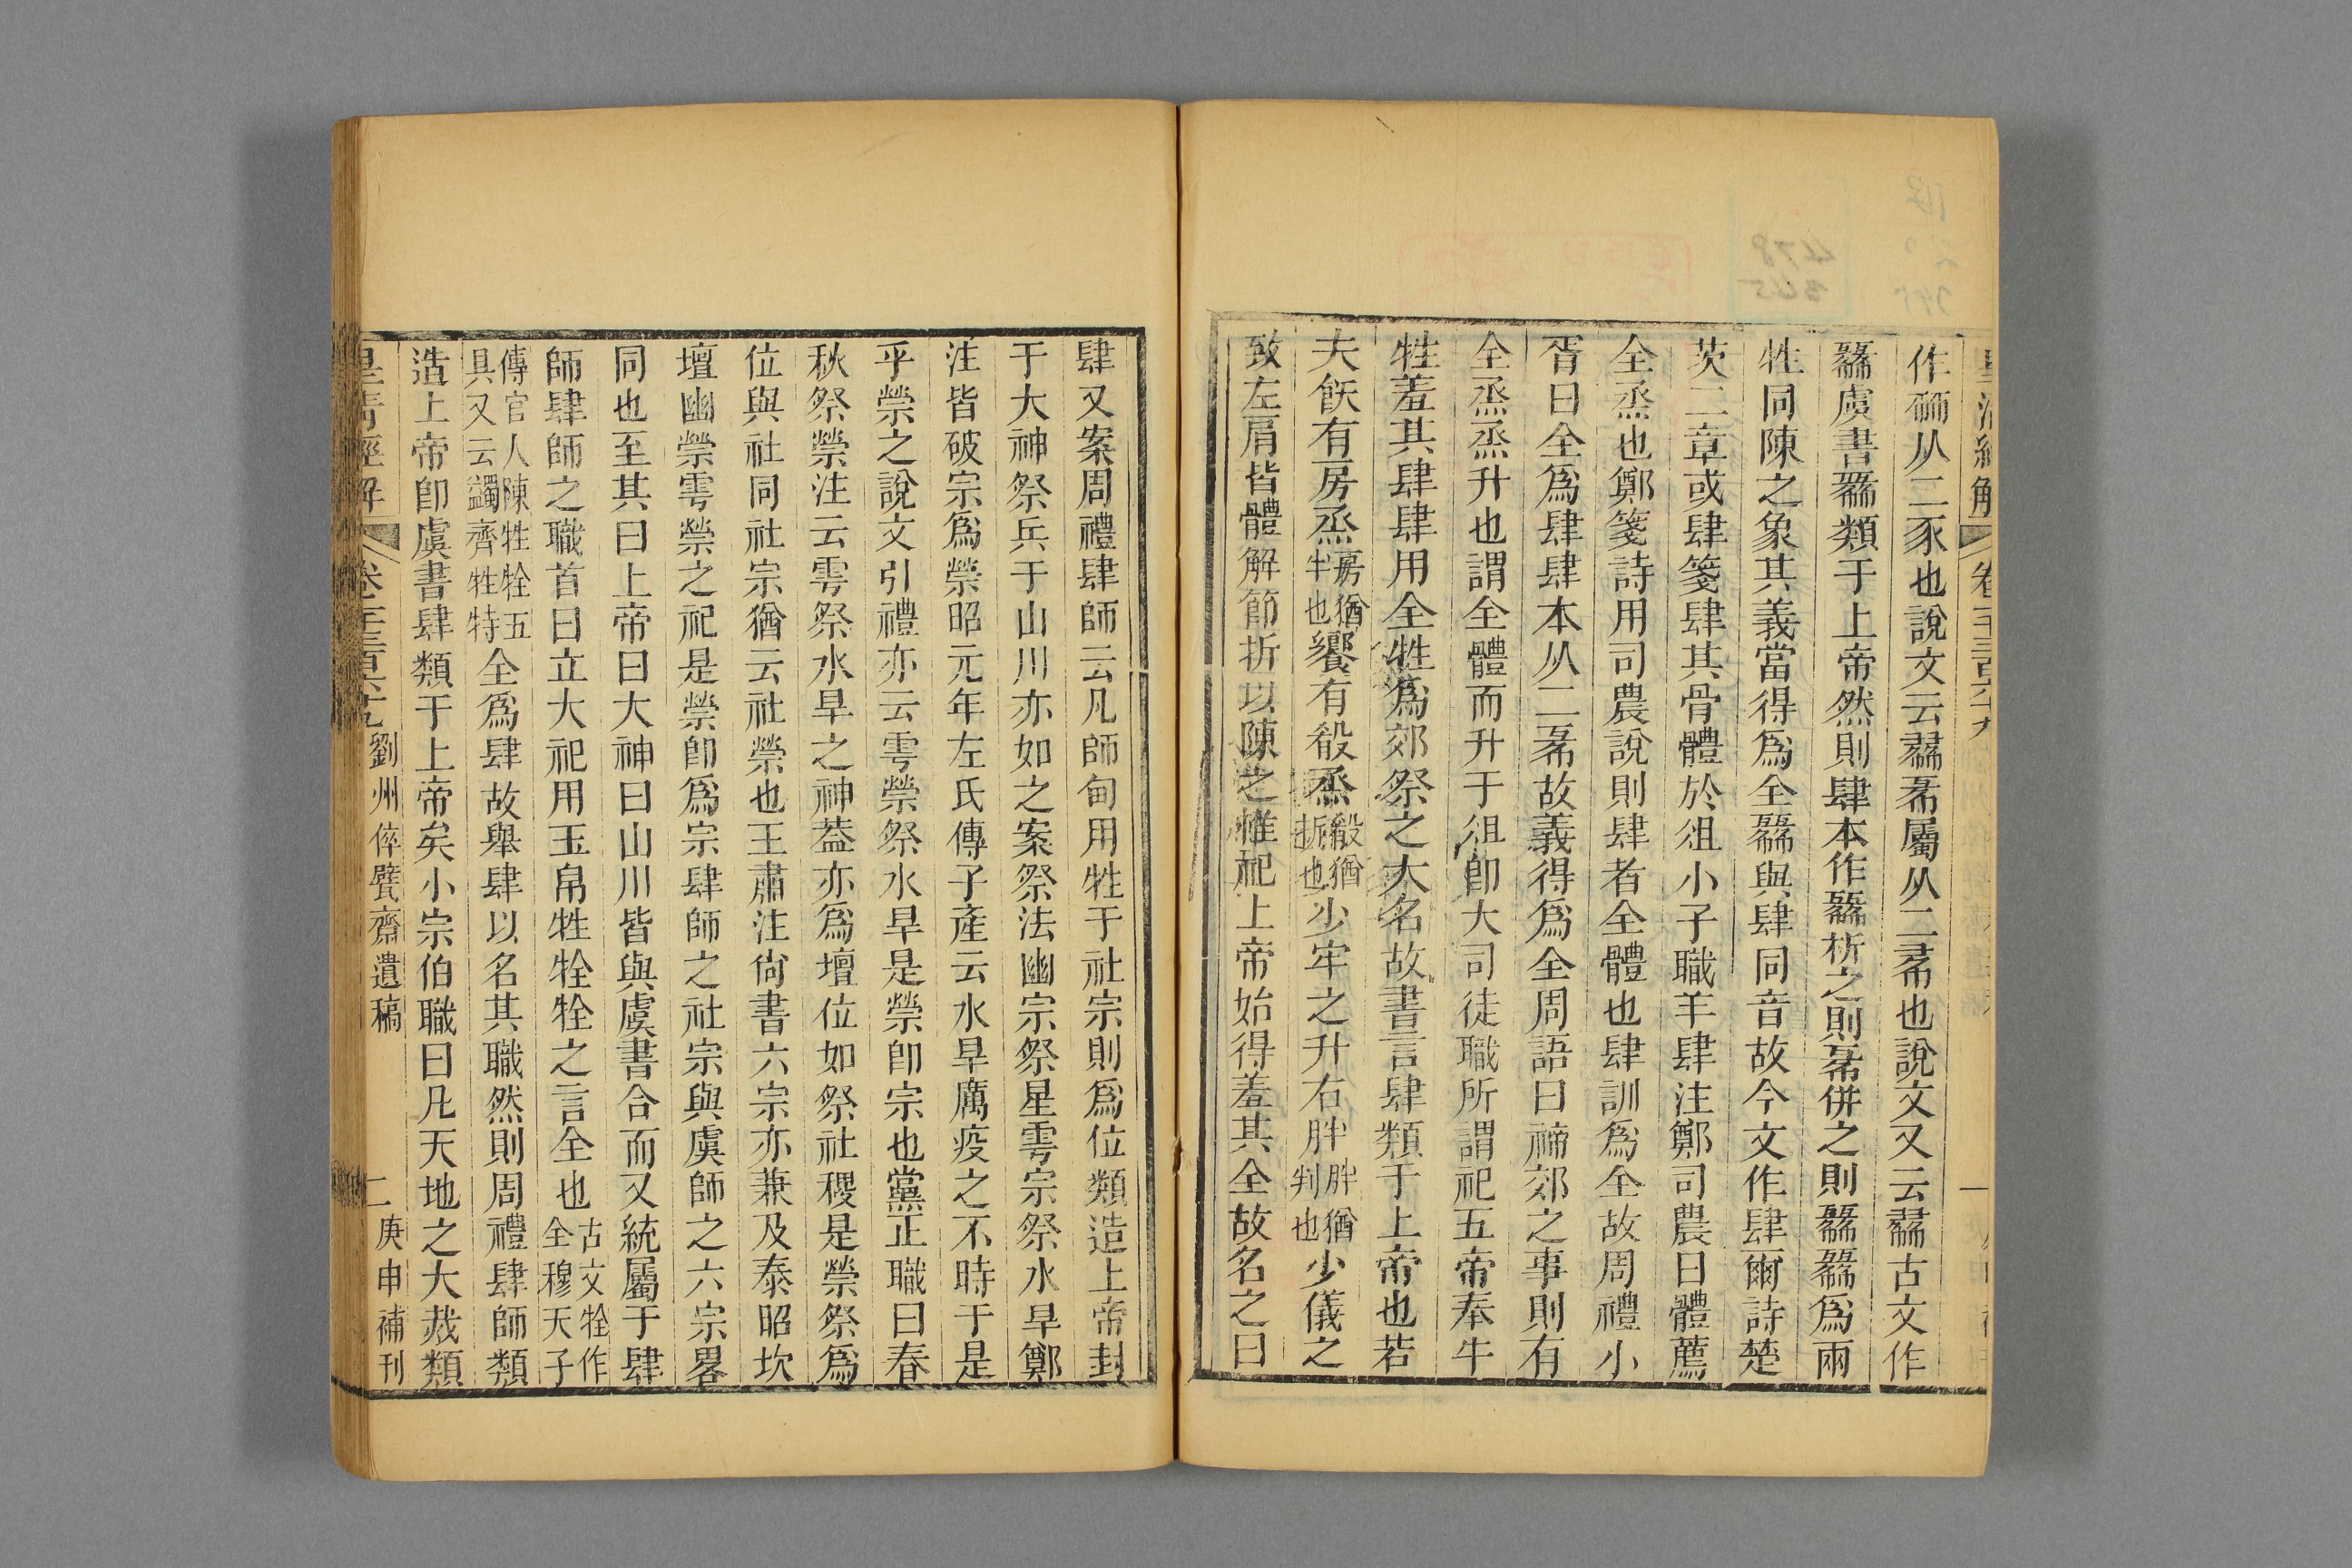 作𧰲从二豕也說文云𧟀㣇屬从二㣇也說文又云𧟀古文作
𧟀虞書𧟀類于上帝然則肆本作𧟀析之則㣇併之則𧟀𧟀爲兩
牲同陳之象其義當得爲全𧟀與肆同音故今文作肆爾詩楚
茨二章或肆箋肆其骨體於俎小子職羊肆注鄭司農曰體薦
全烝也鄭箋詩用司農說則肆者全體也肆訓爲全故周禮小
胥曰全爲肆肆本从二㣇故義得爲全周語曰禘郊之事則有
全烝烝升也謂全體而升于俎卽大司徒職所謂祀五帝奉牛
牲羞其肆肆用全牲爲郊祭之大名故書言肆類于上帝也若
夫飫有房烝房猶半也饗有殽烝殽猶折也少牢之升右胖胖猶判也少儀之
致左肩皆體解節折以陳之惟祀上帝始得羞其全故名之曰
肆又案周禮肆師云凡師甸用牲于社宗則爲位類造上帝封
于大神祭兵于山川亦如之案祭法幽宗祭星雩宗祭水旱鄭
注皆破宗爲禜昭元年左氏傳子產云水旱厲疫之不時于是
乎禜之說文引禮亦云雩禜祭水旱是禜卽宗也黨正職曰春
秋祭禜注云雩祭水旱之神葢亦爲壇位如祭社稷是禜祭爲
位與社同社宗猶云社禜也王肅注尙書六宗亦兼及泰昭坎
壇幽禜雩禜之祀是禜卽爲宗肆師之社宗與虞師之六宗畧
同也至其曰上帝曰大神曰山川皆與虞書合而又統屬于肆
師肆師之職首曰立大祀用玉帛牲牷牷之言全也古文牷作全穆天子
傳官人陳牲牷五具又云蠲齊牲特全爲肆故舉肆以名其職然則周禮肆師類
造上帝卽虞書肆類于上帝矣小宗伯職曰凡天地之大烖類
劉州倅甓齋遺稿
二
庚申補刊